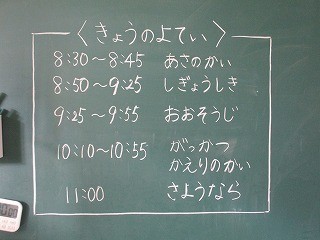 〈きょうのよてい〉
8:30〜8:45 あさのかい
8:50〜9:25 しぎょうしき
9:25〜9:55 おおそうじ
10:10〜10:55 がっかつ
かえりのかい
11:00 さようなら